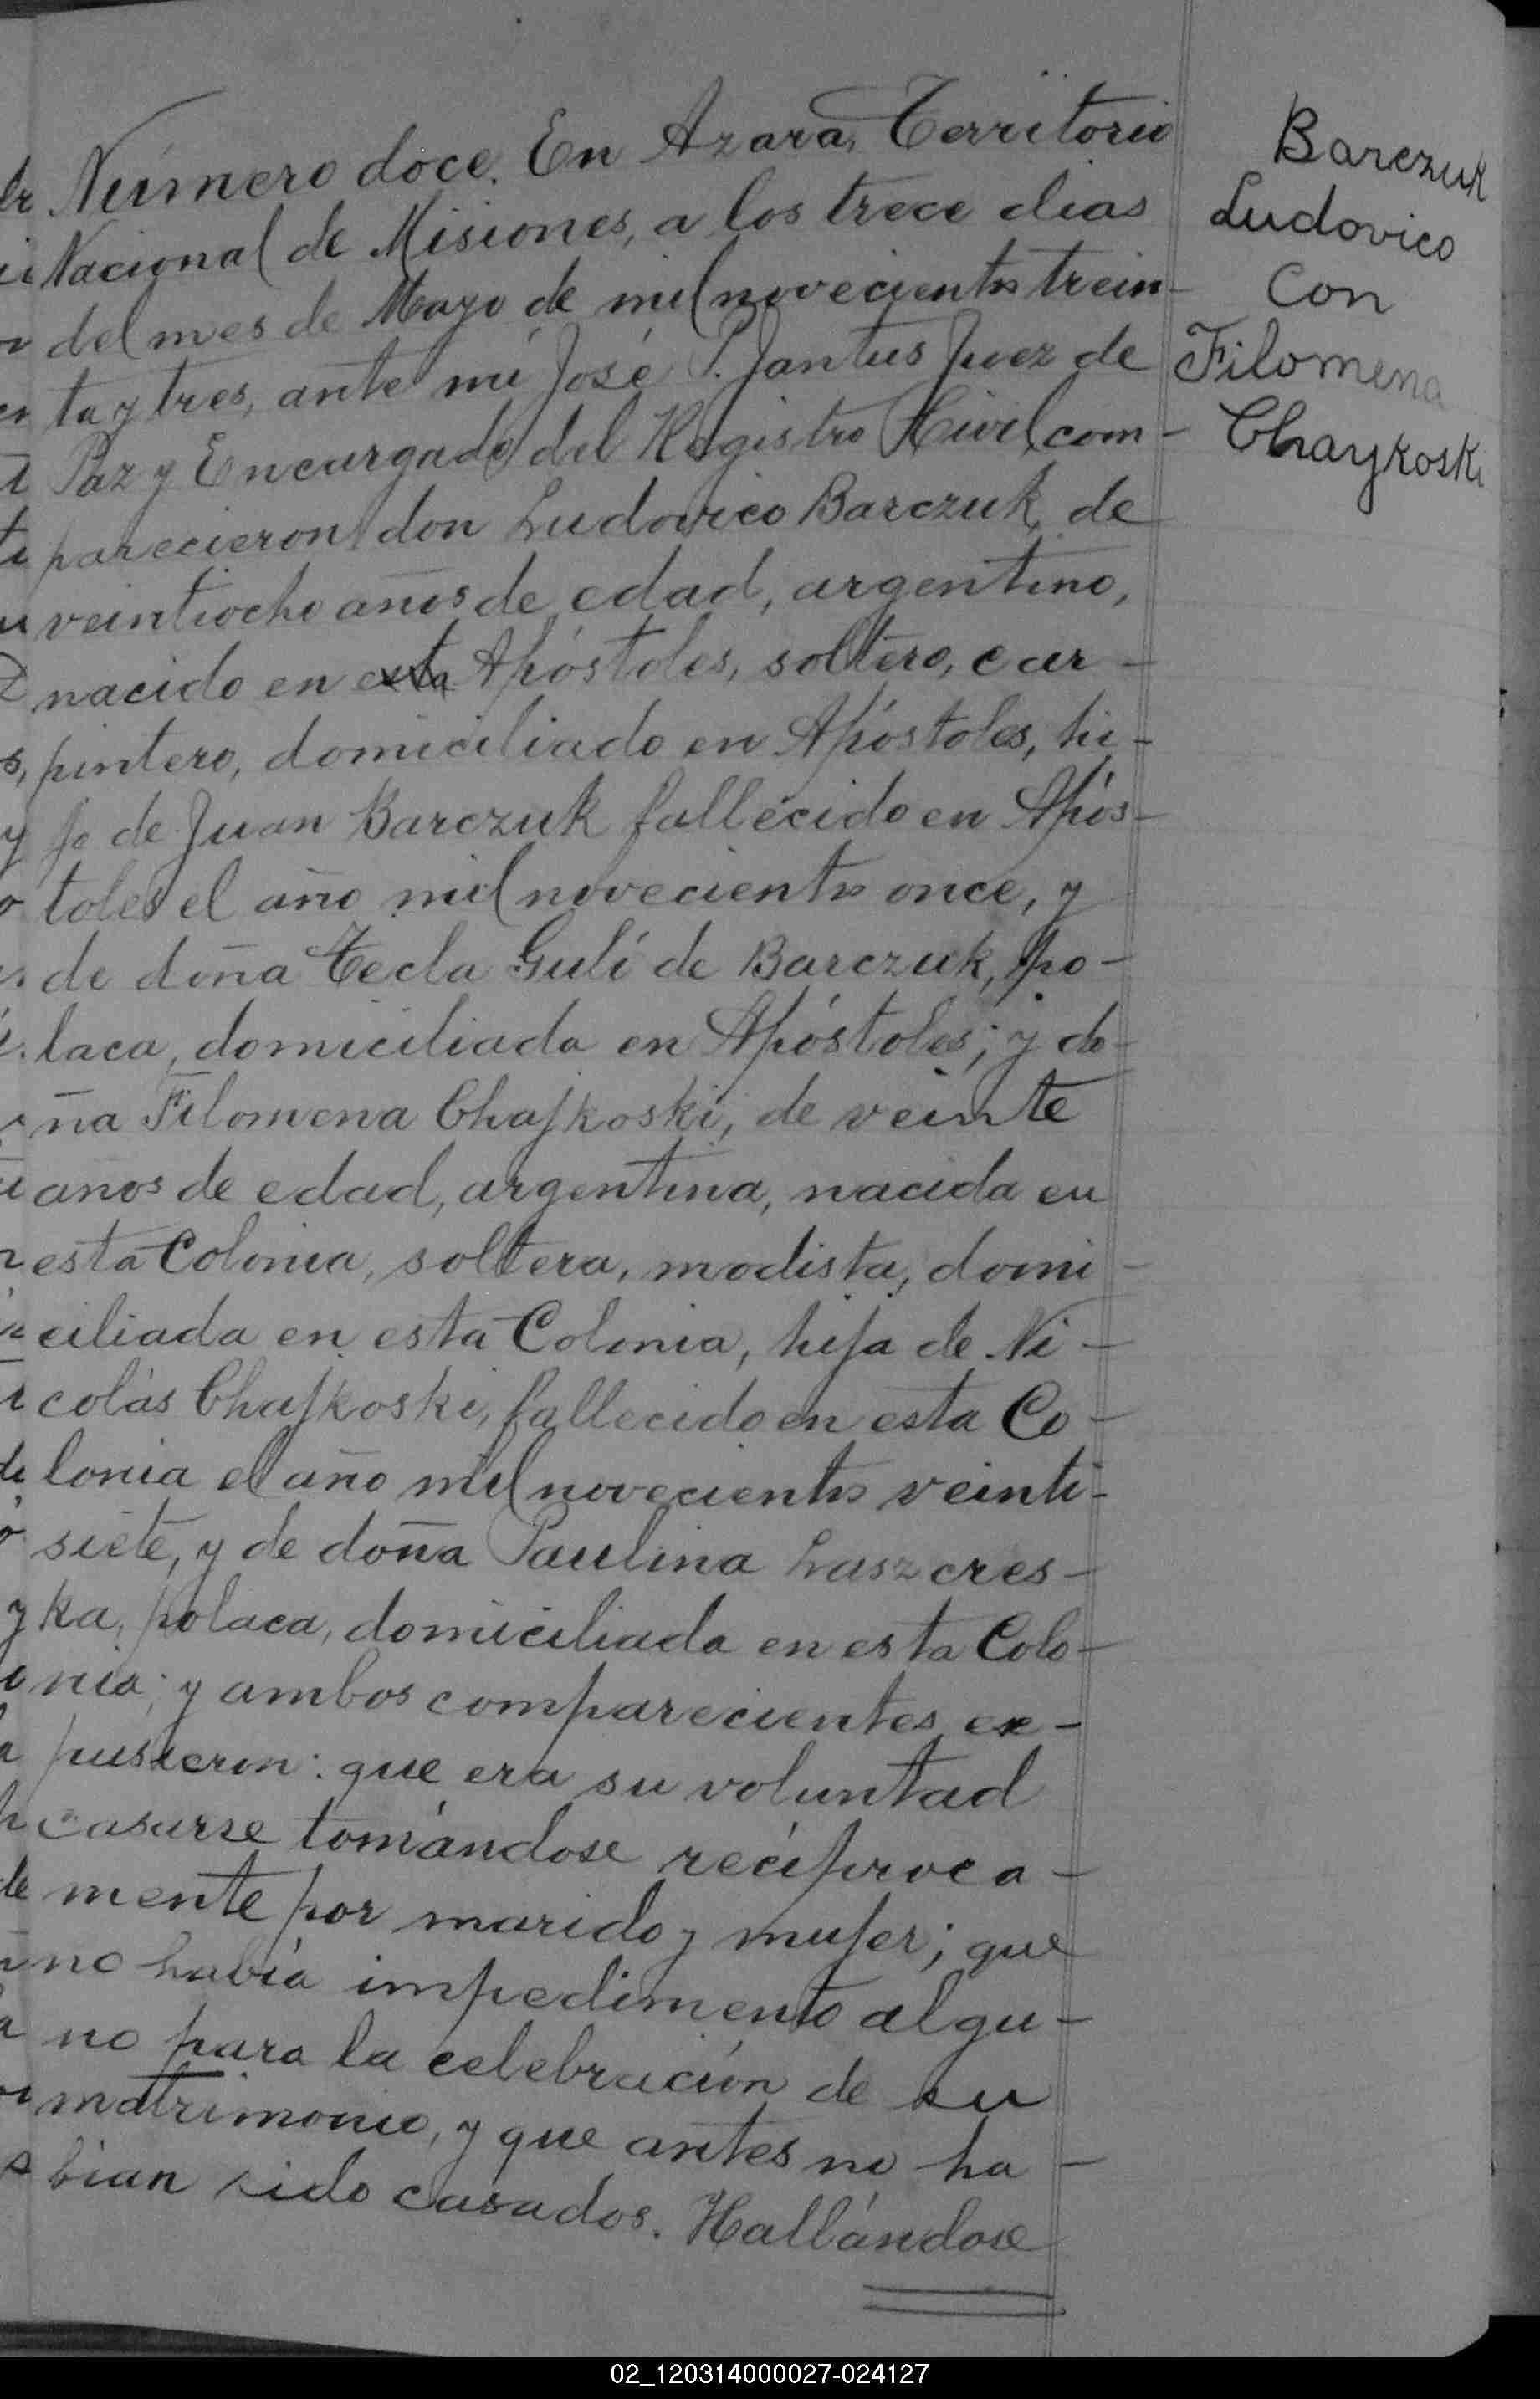 Número doce. En Azara, Territorio
Nacional de Misiones, a los trece dias
del mes de Mayo de mil novecientos trein-
ta y tres, ante mí José P. Jantus Juez de
Paz y Encargado del Registro Civil, com-
parecieron don Ludovico Barczuk, de
veintiocho años de edad, argentino,
nacido en esta Apóstoles, soltero, car-
pintero, domiciliado en Apóstoles, hi-
jo de Juan Barczuk fallecido en Após-
toles el año mil novecientos once, y
de doña Tecla Gulí de Barczuk, po-
laca, domiciliada en Apóstoles; y do-
ña Filomena Chajkoski, de veinte
anos de edad, argentina, nacida en
esta Colonia, soltera, modista, domi-
ciliada en esta Colonia, hija de Ni-
colás Chajkoski, fallecido en esta Co-
lonia el año mil novecientos veinti-
siete, y de doña Paulina Laszcres-
ka, polaca, domiciliada en esta Colo-
nia; y ambos comparecientes ex-
pusieron: que era su voluntad
casarse tomándose recíproca-
mente por marido y mujer; que
no había impedimento algu-
no para la celebración de su
matrimonio, y que antes no ha-
bian sido casados. Hallándose
Barczuk
Ludovico
con
Filomena
Chaykoski
02_120314000027-024127